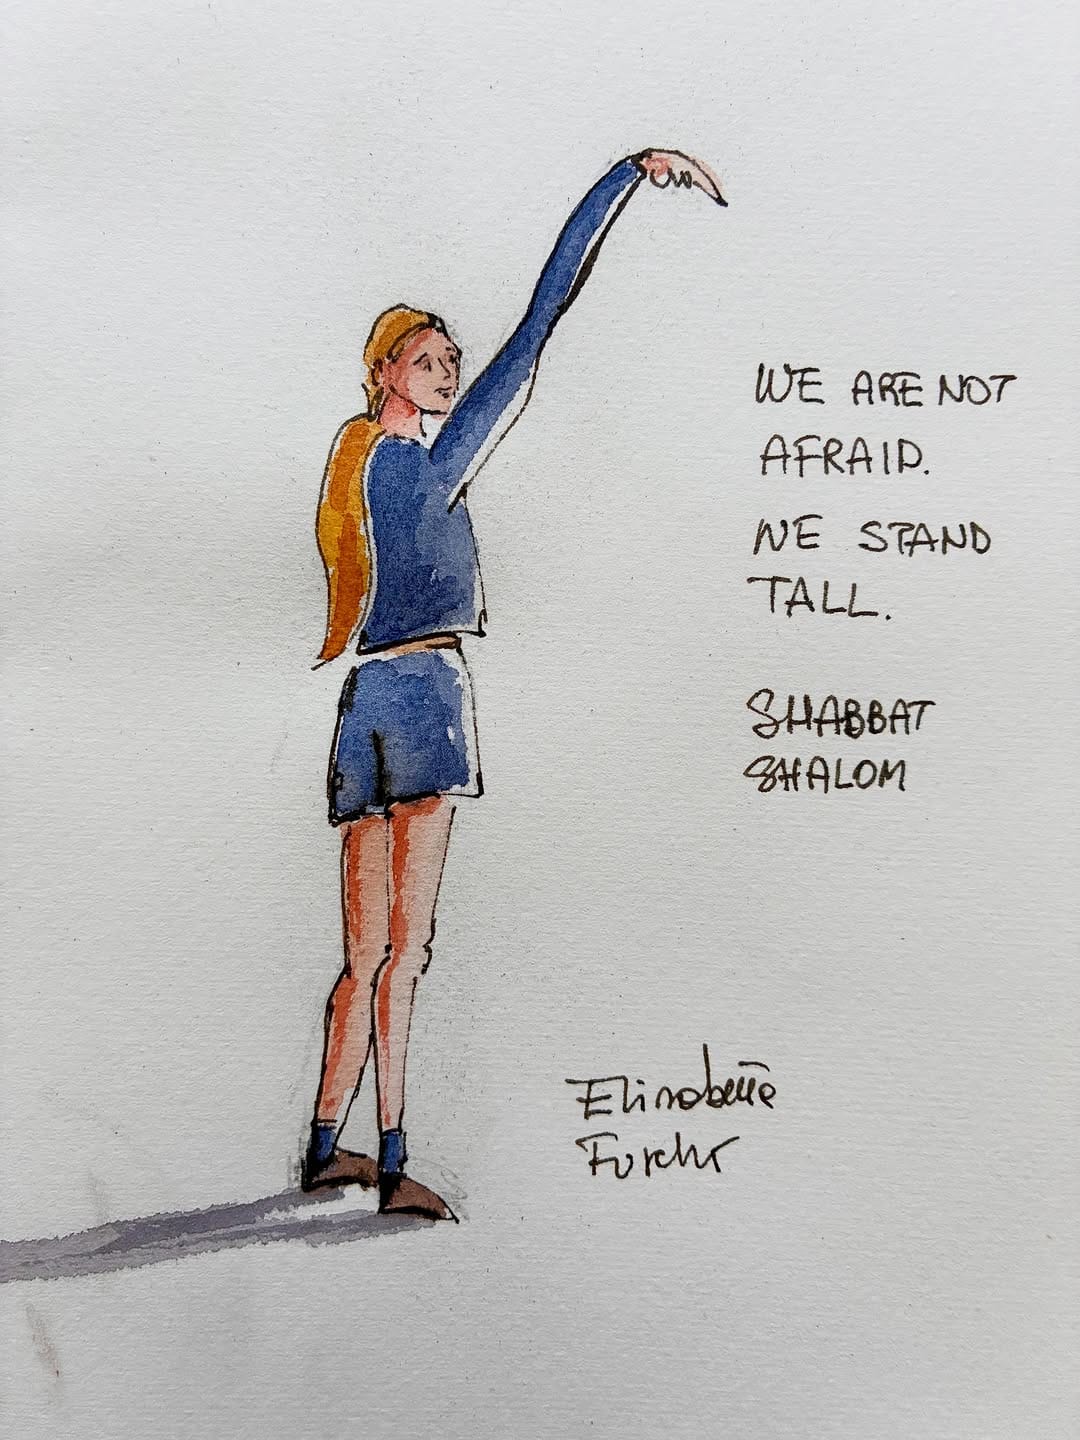 WE ARE NOT
AFRAID.
WE STAND
TALL.
SHABBAT
SHALOM
Elisabetta